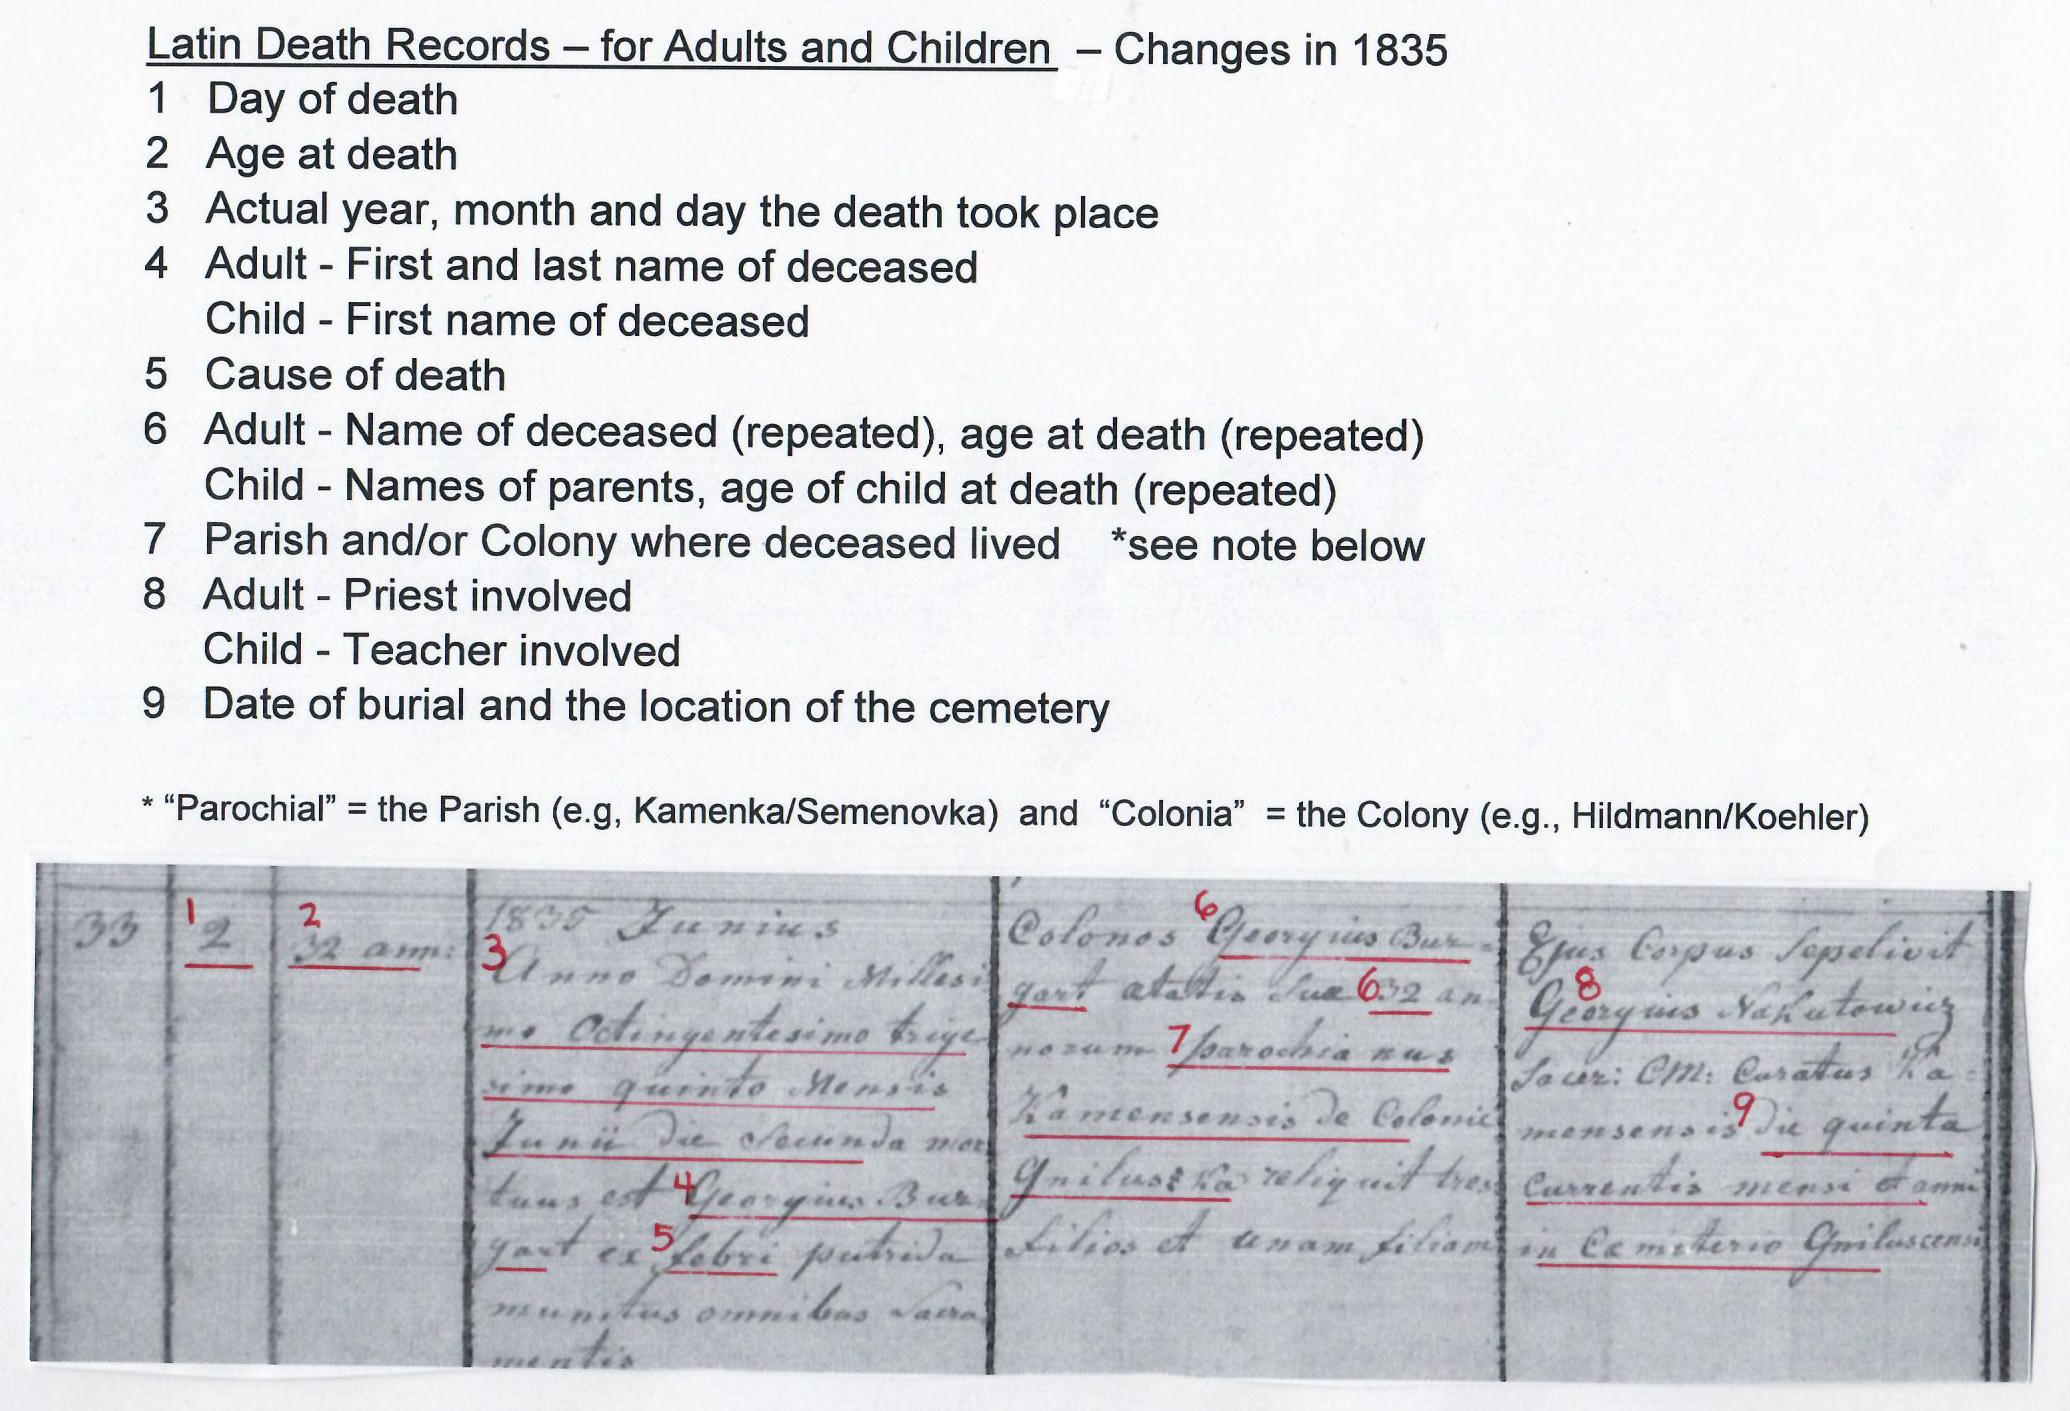 Latin Death Records – for Adults and Children – Changes in 1835
1 Day of death
2 Age at death
3 Actual year, month and day the death took place
4 Adult - First and last name of deceased
Child - First name of deceased
5 Cause of death
6 Adult - Name of deceased (repeated), age at death (repeated)
Child - Names of parents, age of child at death (repeated)
7 Parish and/or Colony where deceased lived *see note below
8 Adult - Priest involved
Child - Teacher involved
9 Date of burial and the location of the cemetery
* “Parochial” = the Parish (e.g, Kamenka/Semenovka) and “Colonia” = the Colony (e.g., Hildmann/Koehler)
33
1
2
2
32 ann:
1835 Junius
3 Anno Domini Millesi
mo Octingentesimo trige
simo quinto Mensis
Junii die Secunda mor
tuus est 4 Georgius Bur-
gart ex 5 febri putrida
munitus omnibus Sacra
mentis
6
Colonos Georgius Bur-
gart atatis Sua 6 32 an
norum 7 parochia nus
Kamensensis de Colonie
Gniluska reliquit tres
filios et unam filiam
Ejus Corpus Sepelivit
8
Georgius Nakutowicz
Sacer: CM: Curatus Ka-
mensensis 9 die quinta
Currentis mensi et anni
in Cemeterio Gniluscensi